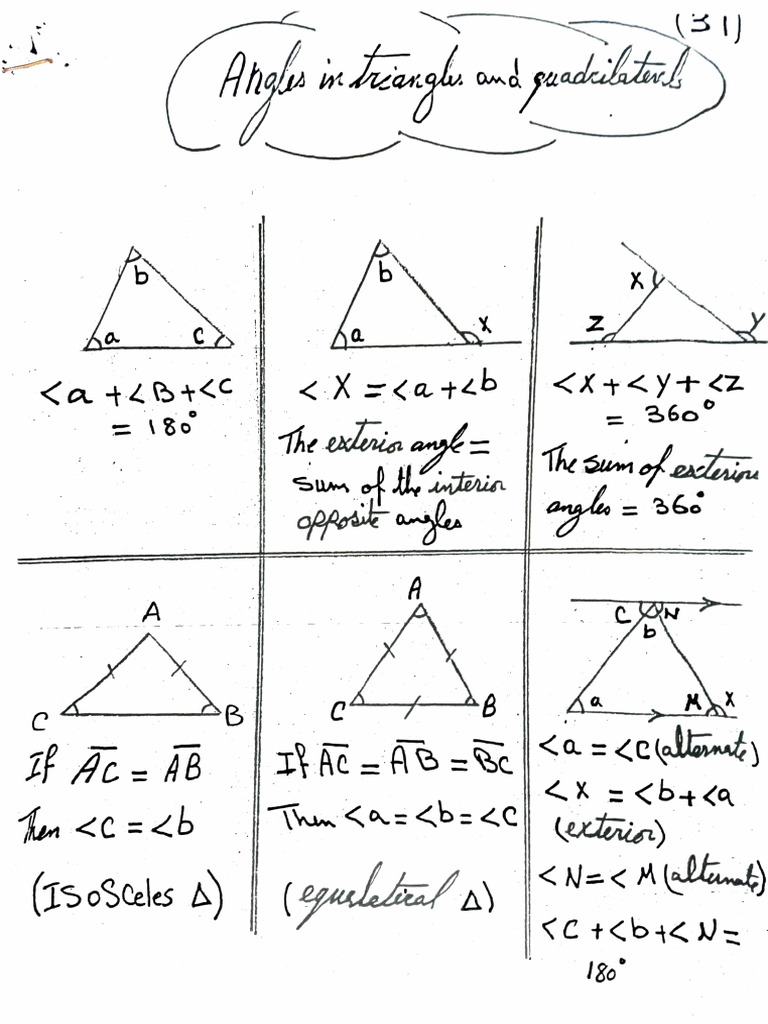 (31)
Angles in triangles and quadrilaterals
b
a
c
<a + <B + <c
= 180°
b
a
X
< X = <a + <b
The exterior angle =
sum of the interior
opposite angles
X
Z
Y
<X + <Y + <Z
= 360°
The sum of exterior
angles = 360°
A
C
B
If AC = AB
Then <C = <b
(ISoSCeles Δ)
A
C
B
If AC = AB = BC
Then <a = <b = <C
(equelateral Δ)
C
N
b
a
M
X
<a = <C (alternate)
<X = <b + <a
(exterior)
<N = <M (alternate)
<C + <b + <N =
180°